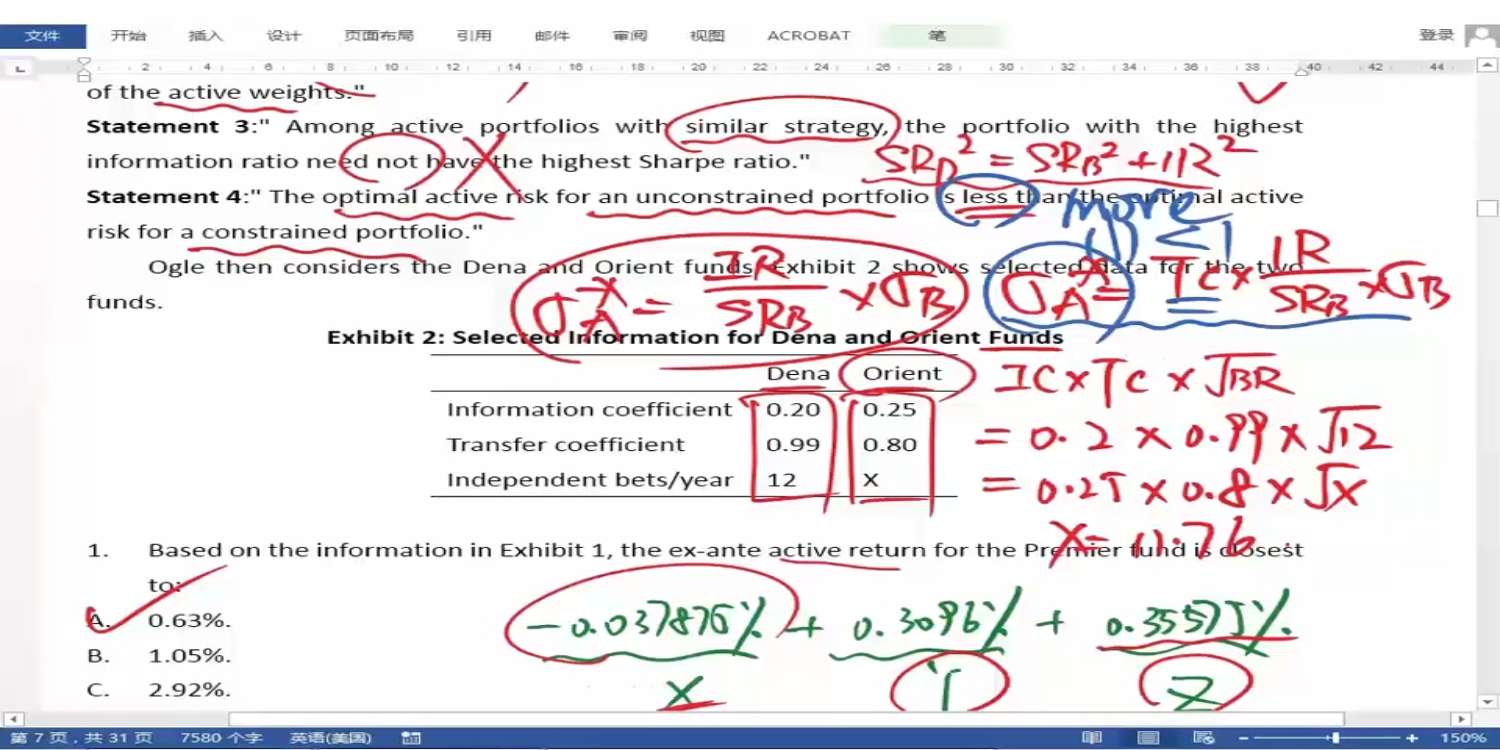 文件 开始 插入 设计 页面布局 引用 邮件 审阅 视图 ACROBAT 笔 登录
2 4 6 8 10 12 14 16 18 20 22 24 26 28 30 32 34 36 38 40 42 44
of the active weights."
Statement 3:" Among active portfolios with similar strategy, the portfolio with the highest
information ratio need not have the highest Sharpe ratio."
SRp² = SRB² + IR²
Statement 4:" The optimal active risk for an unconstrained portfolio is less than the optimal active
more
risk for a constrained portfolio."
≤1
Ogle then considers the Dena and Orient funds. Exhibit 2 shows selected data for the two
funds.
σA* = IR/SRB × σB
σA* = TC × IR/SRB × σB
Exhibit 2: Selected Information for Dena and Orient Funds
Dena Orient
IC × TC × √BR
Information coefficient 0.20 0.25
Transfer coefficient 0.99 0.80
= 0.2 × 0.99 × √12
Independent bets/year 12 X
= 0.25 × 0.8 × √X
X= 11.76
1. Based on the information in Exhibit 1, the ex-ante active return for the Premier fund is closest
to:
A. 0.63%.
-0.037875% + 0.3096% + 0.35575%
B. 1.05%.
C. 2.92%.
X Y Z
第 7 页，共 31 页 7580 个字 英语(美国) 150%